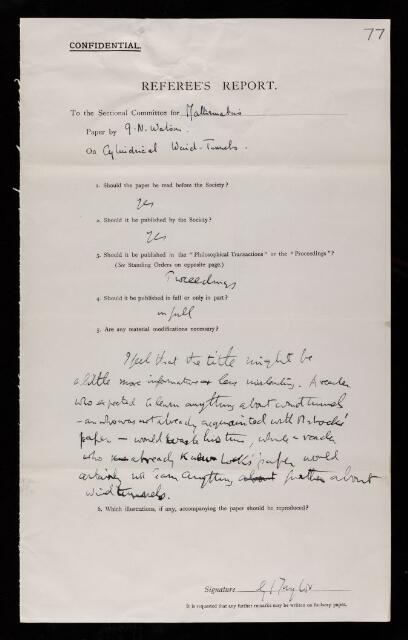 77
CONFIDENTIAL.
REFEREE'S REPORT.
To the Sectional Committee for Mathematics
Paper by G. N. Watson.
On Cylindrical Wind-Tunnels.
1. Should the paper be read before the Society?
Yes
2. Should it be published by the Society?
Yes
3. Should it be published in the "Philosophical Transactions" or the "Proceedings"?
(See Standing Orders on opposite page.)
Proceedings
4. Should it be published in full or only in part?
in full
5. Are any material modifications necessary?
I feel that the title might be
a little more informative or less misleading. A reader
who expected to learn anything about wind tunnels
— and who was not already acquainted with
paper — would his time, while a reader
who already knew paper would
certainly not learn anything about further about
wind tunnels.
6. Which illustrations, if any, accompanying the paper should be reproduced?
Signature G I Taylor
It is requested that any further remarks may be written on fly-leaf paper.